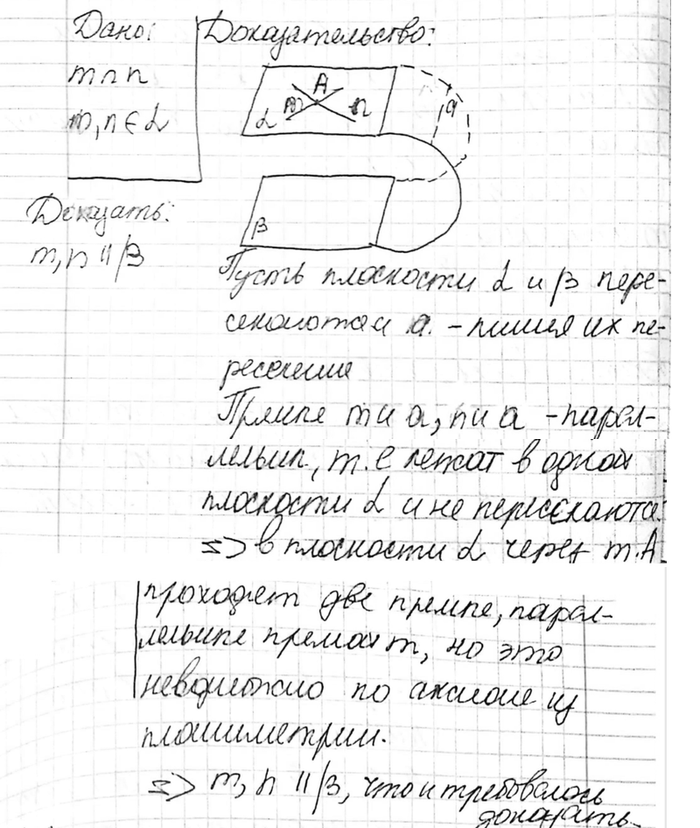 Дано:
Доказательство:
m ∩ n
m, n ∈ α
A
m
n
α
a
β
Доказать:
m, n || β
Пусть плоскости α и β пере-
секаются и a. - линия их пе-
ресечения
Прямые m и a, n и a - парал-
лельны, т.е лежат в одной
плоскости α и не пересекаются.
=> в плоскости α через т.А
проходят две прямые, парал-
лельные прямой m, но это
невозможно по аксиоме из
планиметрии.
=> m, n || β, что и требовалось
доказать.